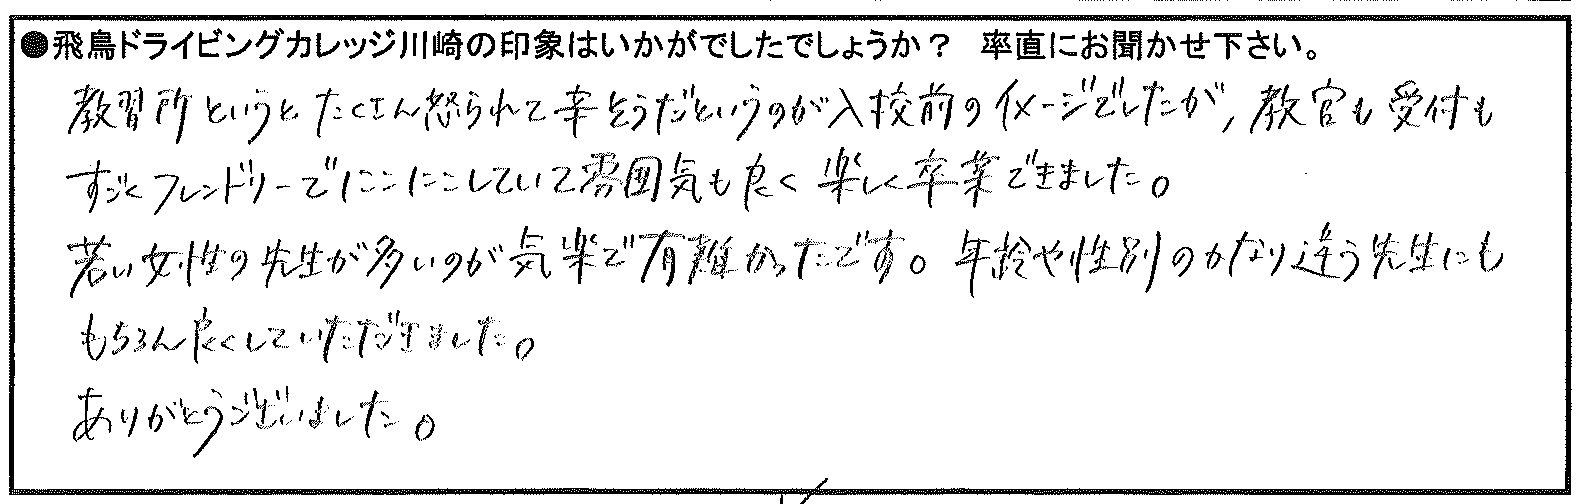 ●飛鳥ドライビングカレッジ川崎の印象はいかがでしたでしょうか？　率直にお聞かせ下さい。
教習所というと たくさん怒られて辛そうだというのが入校前のイメージでしたが、教官も受付も
すごくフレンドリーでにこにこしていて雰囲気も良く楽しく卒業できました。
若い女性の先生が多いのが気楽で有難かったです。年齢や性別のかなり違う先生にも
もちろん良くしていただきました。
ありがとうございました。